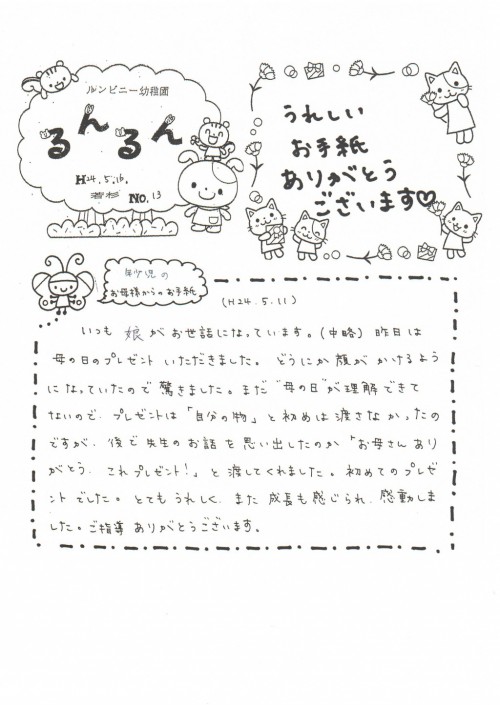 ルンビニー幼稚園
るんるん
H24.5.16.
若杉 No.13
うれしい
お手紙
ありがとう
ございます♡
幼児の
お母様からのお手紙
(H24.5.11)
いつも 娘がお世話になっています。(中略) 昨日は
母の日のプレゼント いただきました。 どうにか顔が かけるよう
になっていたので 驚きました。まだ"母の日"が理解できて
ないので、プレゼントは「自分の物」と初めは渡さなかったの
ですが、後で先生のお話を思い出したのか「お母さんあり
がとう、これプレゼント!」と渡してくれました。初めてのプレゼ
ントでした。とてもうれしく、また成長も感じられ、感動しま
した。ご指導 ありがとうございます。